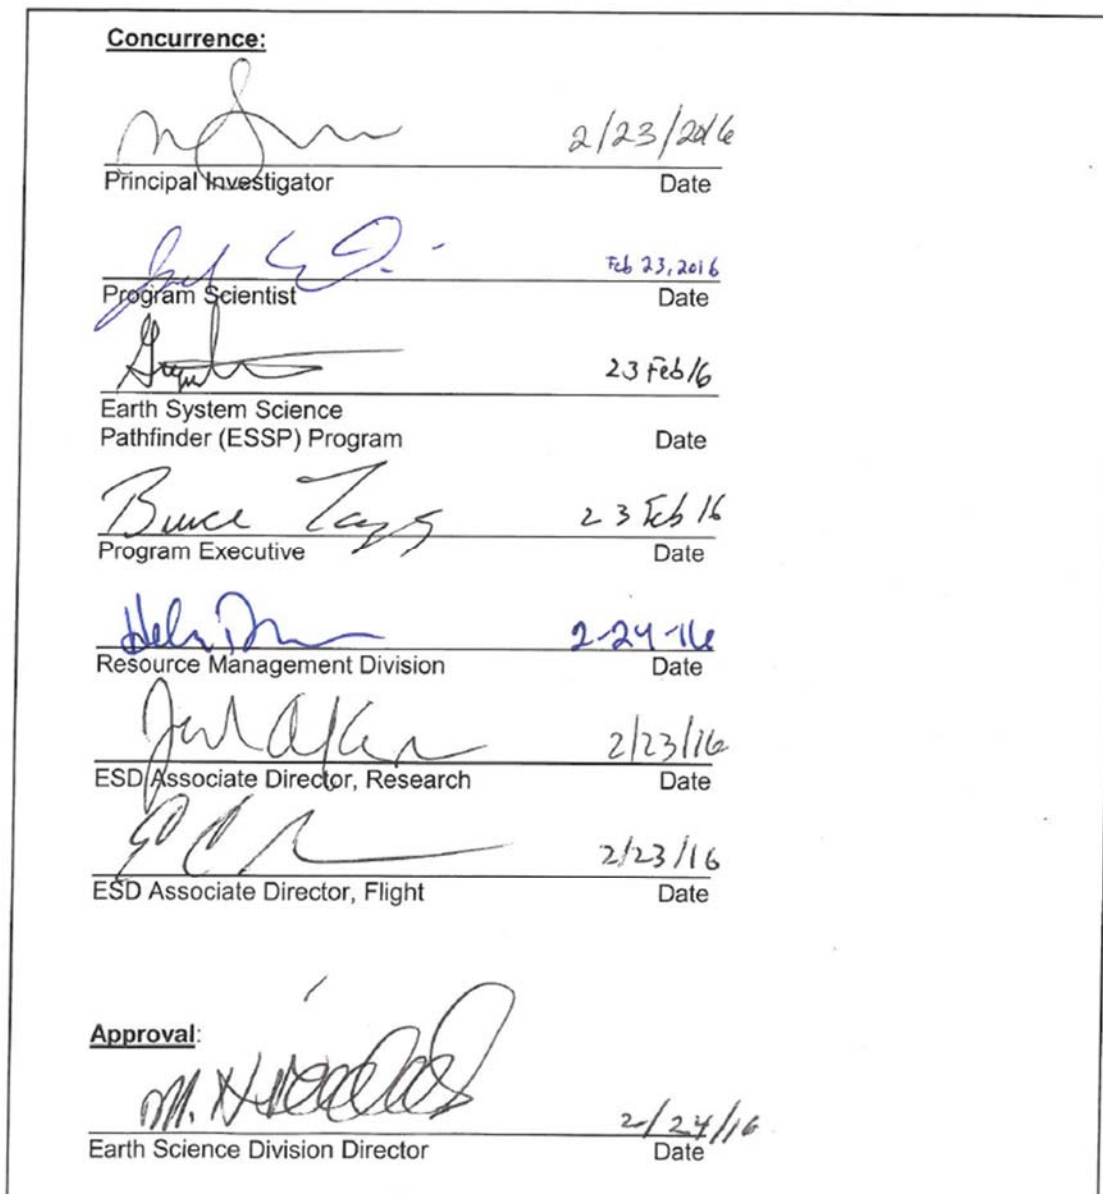 Concurrence:
2/23/2016
Principal Investigator Date
Feb 23, 2016
Program Scientist Date
23 Feb 16
Earth System Science
Pathfinder (ESSP) Program Date
Bruce 23 Feb 16
Program Executive Date
2-24-16
Resource Management Division Date
2/23/16
ESD Associate Director, Research Date
2/23/16
ESD Associate Director, Flight Date
Approval:
M. 2/24/16
Earth Science Division Director Date